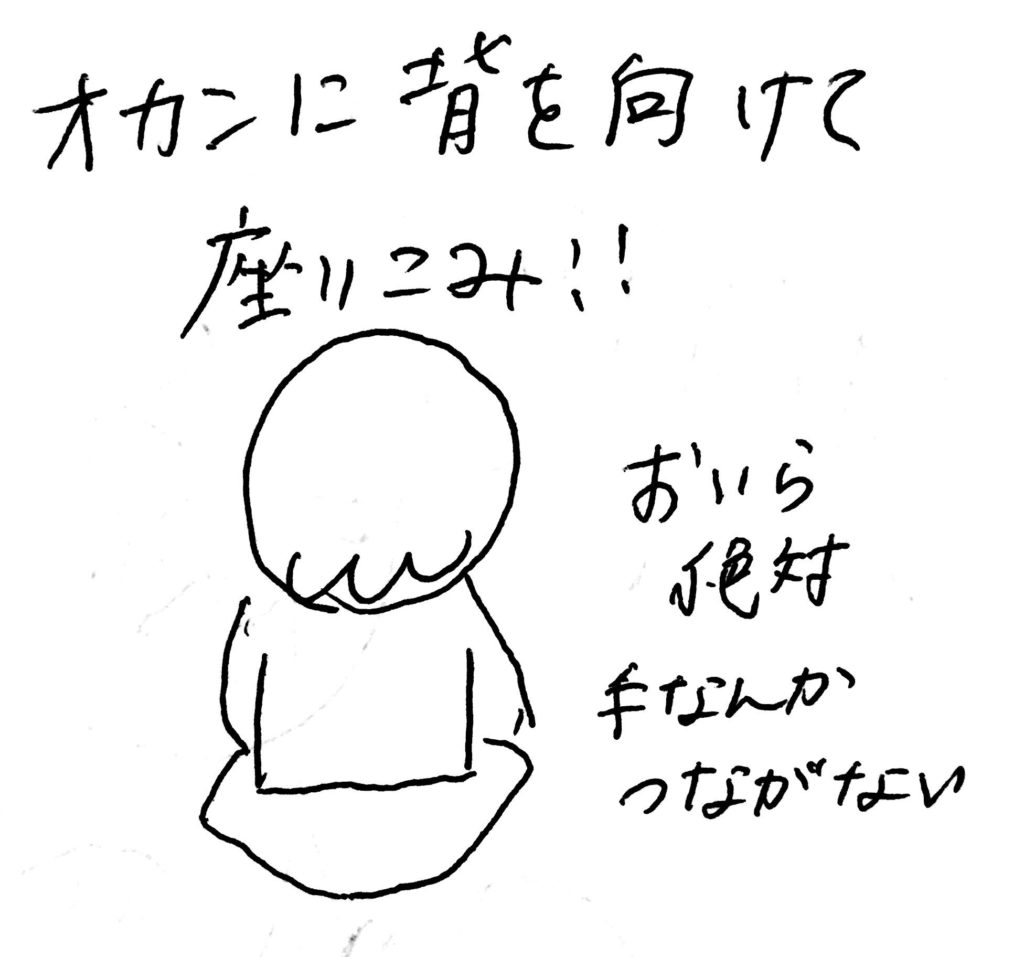 オカンに背を向けて
座りこみ!!
おいら
絶対
手なんか
つながない